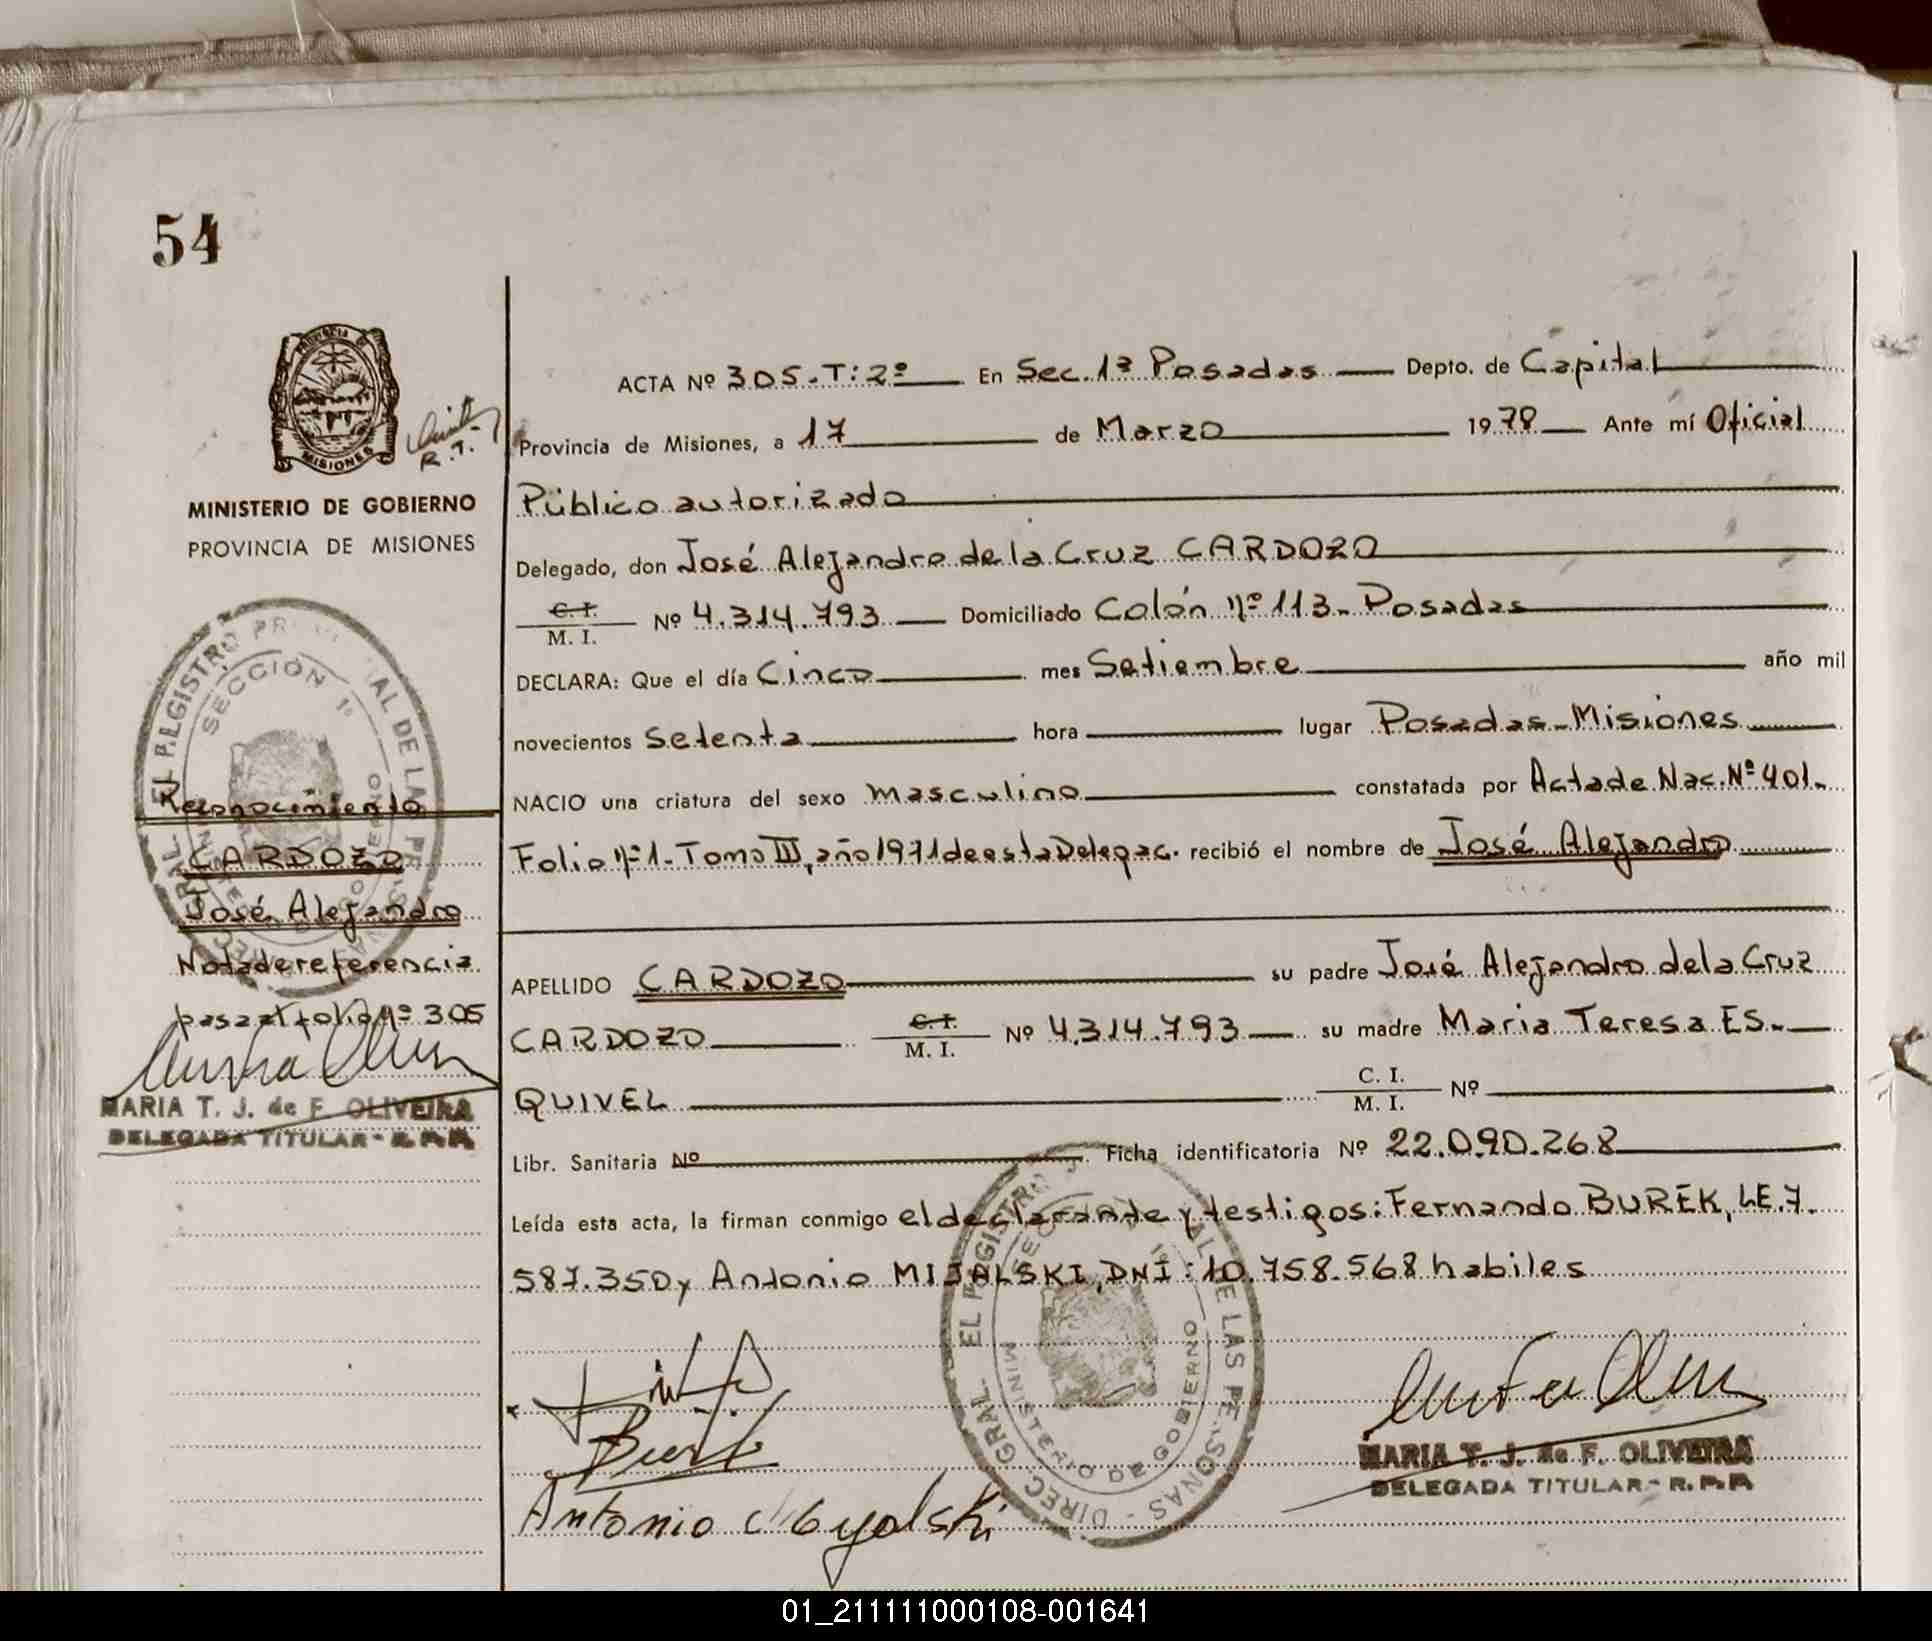 54
MISIONES
R.T.
MINISTERIO DE GOBIERNO
PROVINCIA DE MISIONES
SECCIÓN 1ª
MINISTERIO DE GOBIERNO
Reconocimiento
CARDOZO
José Alejandro
Nota de referencia
pasa al folio Nº 305
MARIA T. J. de F. OLIVEIRA
DELEGADA TITULAR - R.P.P.
ACTA Nº 305.T:2º En Sec.1ª Posadas Depto. de Capital
Provincia de Misiones, a 17 de Marzo 1978 Ante mí Oficial
Público autorizado
Delegado, don José Alejandro de la Cruz CARDOZO
C.I.
M. I. Nº 4.314.793 Domiciliado Colón Nº 113. Posadas
DECLARA: Que el día Cinco mes Setiembre año mil
novecientos Setenta hora lugar Posadas-Misiones
NACIO una criatura del sexo Masculino constatada por Acta de Nac. Nº 401-
Folio Nº 1- Tomo III, año 1971 de esta Delegac. recibió el nombre de José Alejandro
APELLIDO CARDOZO su padre José Alejandro de la Cruz
CARDOZO C.I.
M. I. Nº 4.314.793 su madre Maria Teresa ES-
QUIVEL C. I.
M. I. Nº
Libr. Sanitaria Nº Ficha identificatoria Nº 22.090.268
Leída esta acta, la firman conmigo el declarante y testigos: Fernando BUREK, LE.7.
587.350 y Antonio MIJALSKI, DNI: 10.758.568 habiles
MINISTERIO DE GOBIERNO
Antonio
MARIA T. J. de F. OLIVEIRA
DELEGADA TITULAR - R.P.P.
01_211111000108-001641